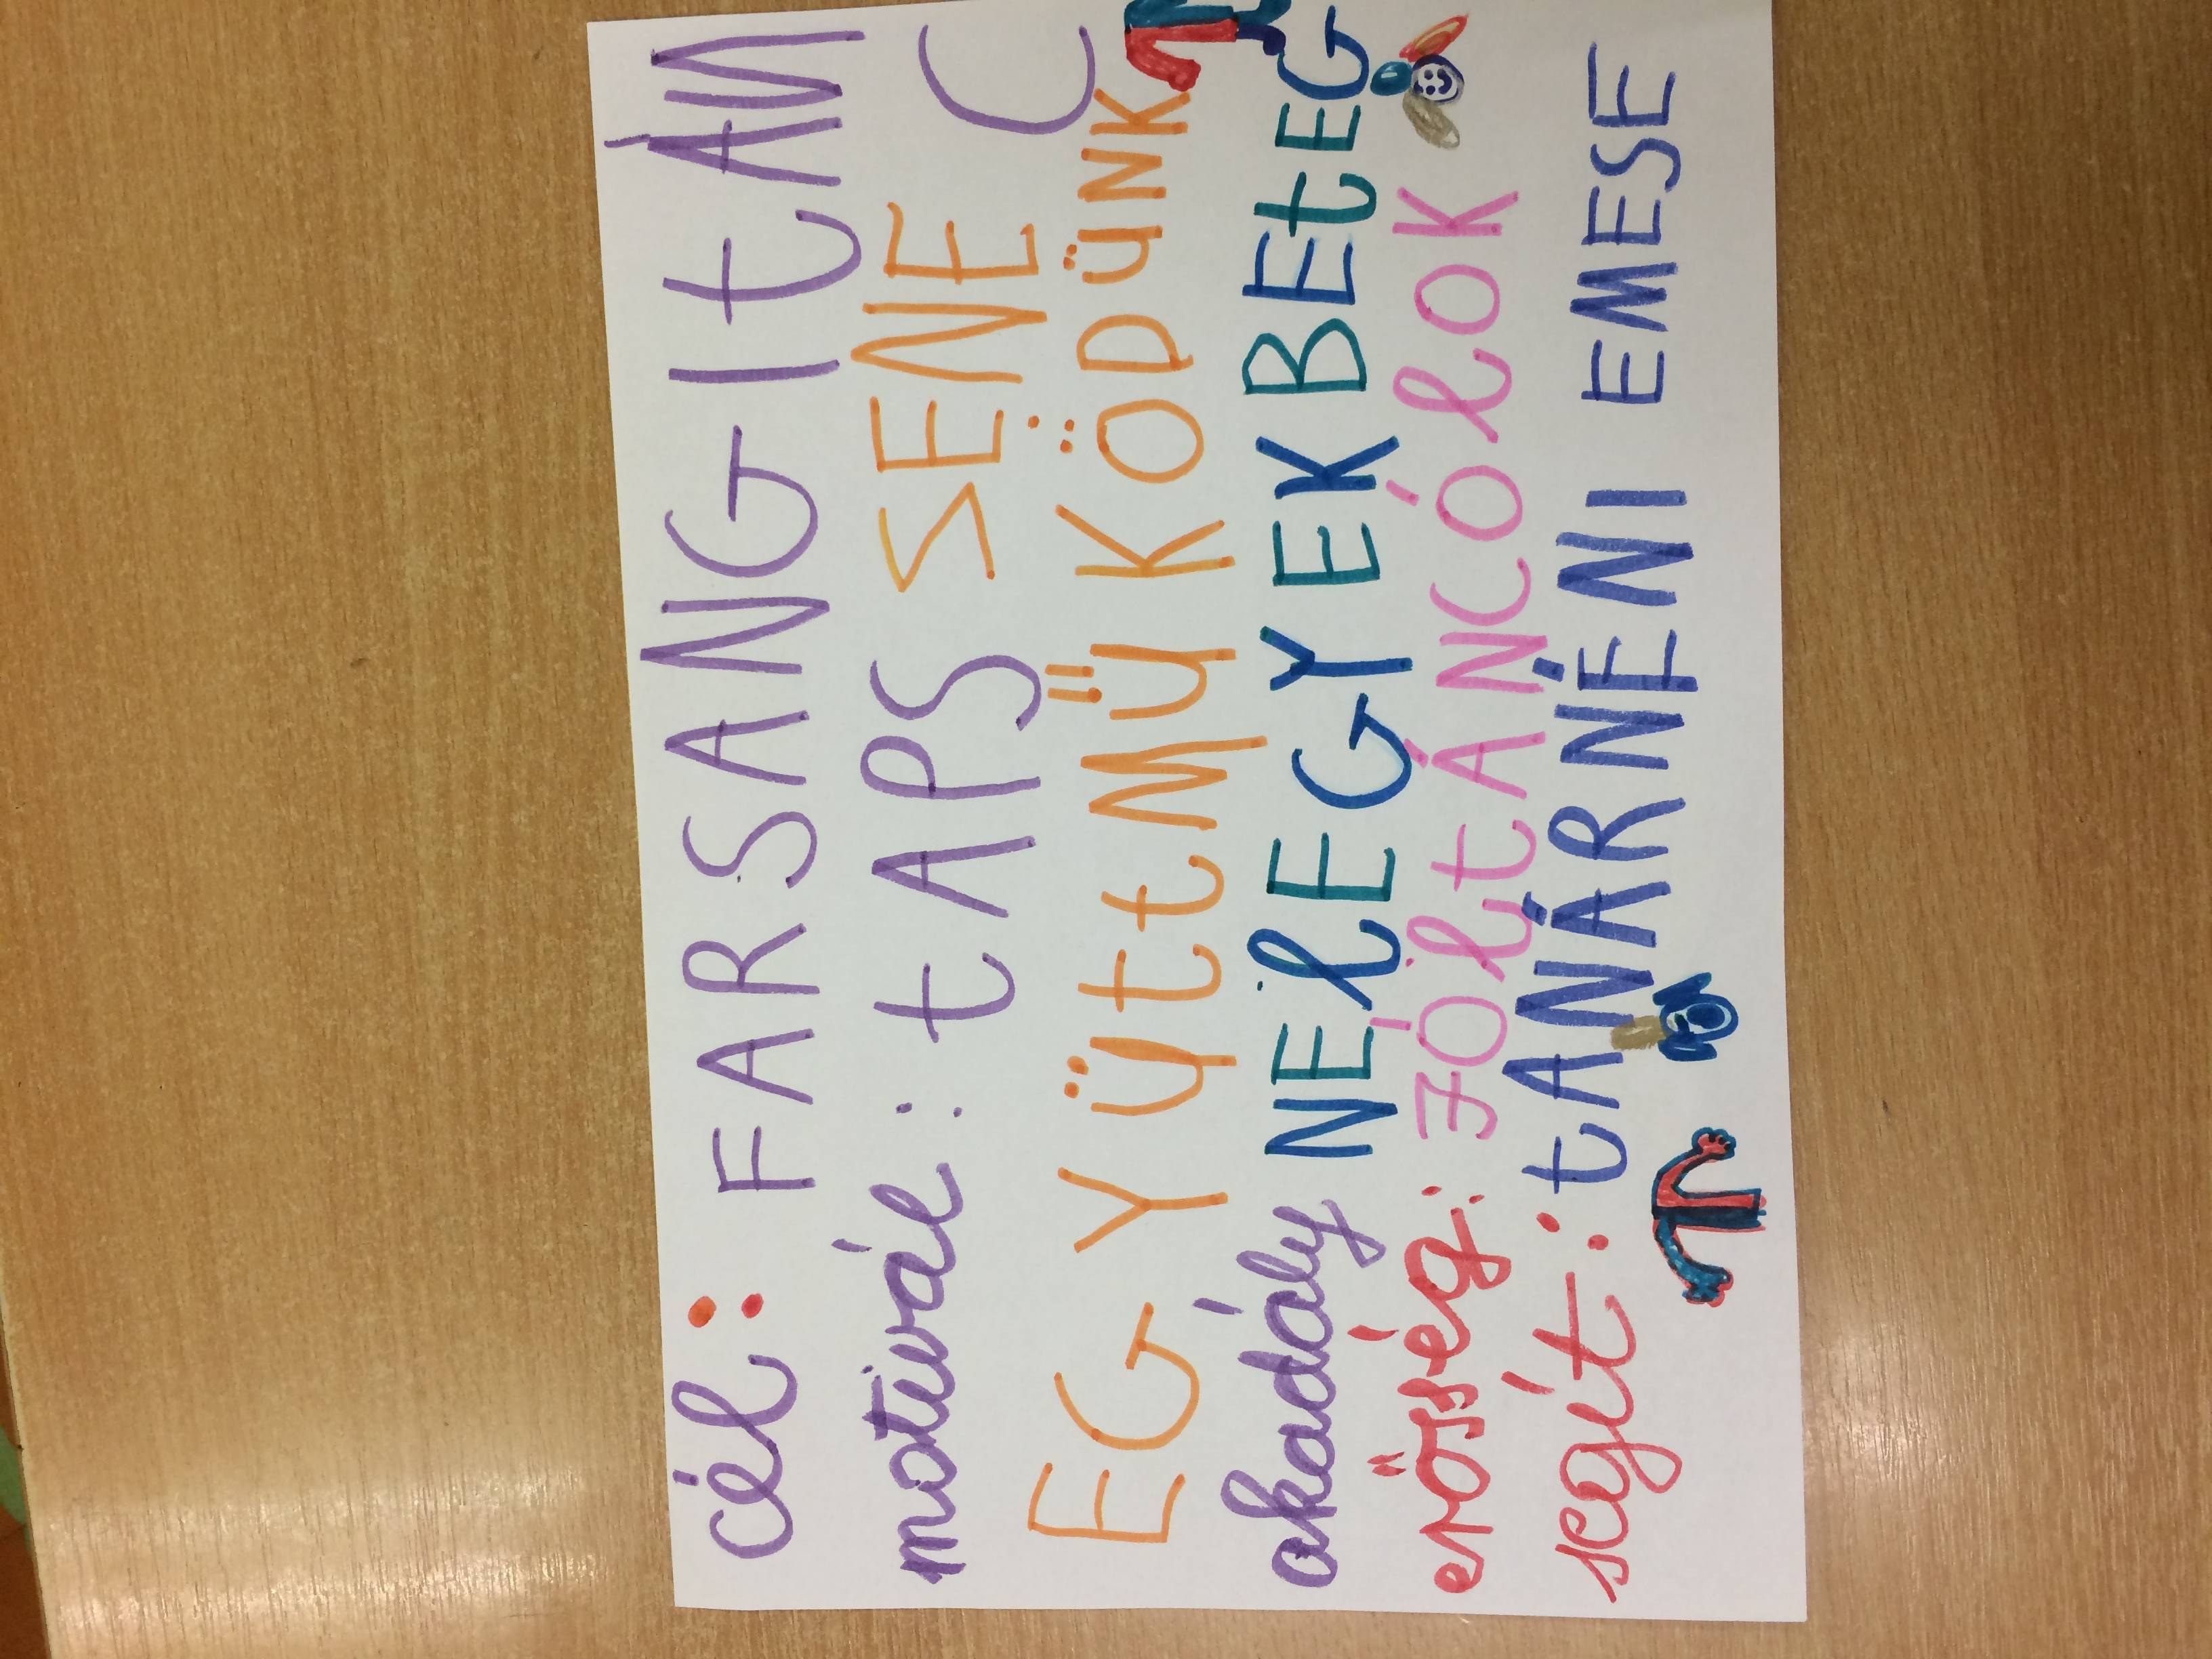 cél: FARSANGI tÁN
motivál: tAPS ZENE C
EGYÜttMŰKÖDÜNK
akadály NE lEGYEK BEtEG
erőség: JÓl tÁNCÓlOK
segít: tANÁRNÉNI EMESE